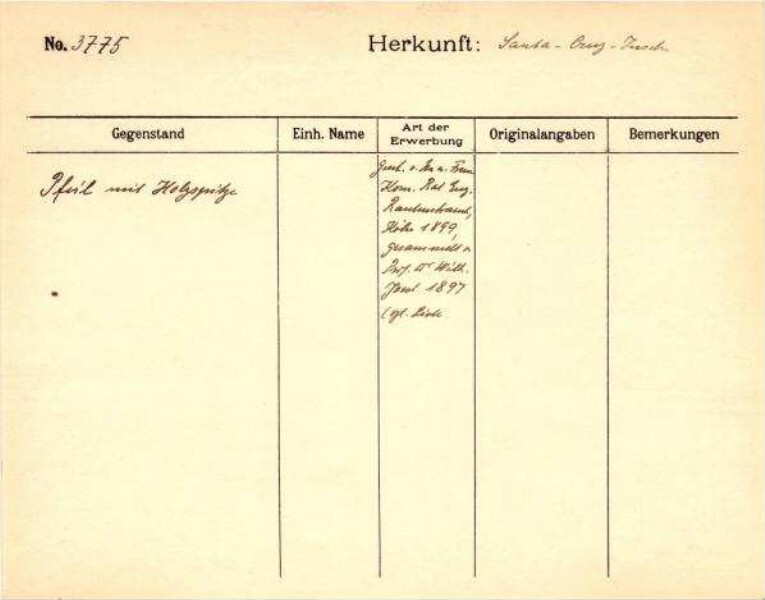 No. 3775
Herkunft: Santa-Cruz-Inseln
Gegenstand
Einh. Name
Art der
Erwerbung
Originalangaben
Bemerkungen
Pfeil mit Holzspitze
Gesch. v. Hn u. Frau
Kom. Rat Eug.
Rautenstrauch,
Köln 1899,
gesammelt v.
Prof. Dr Wilh.
Joest 1897
(vgl. Liste